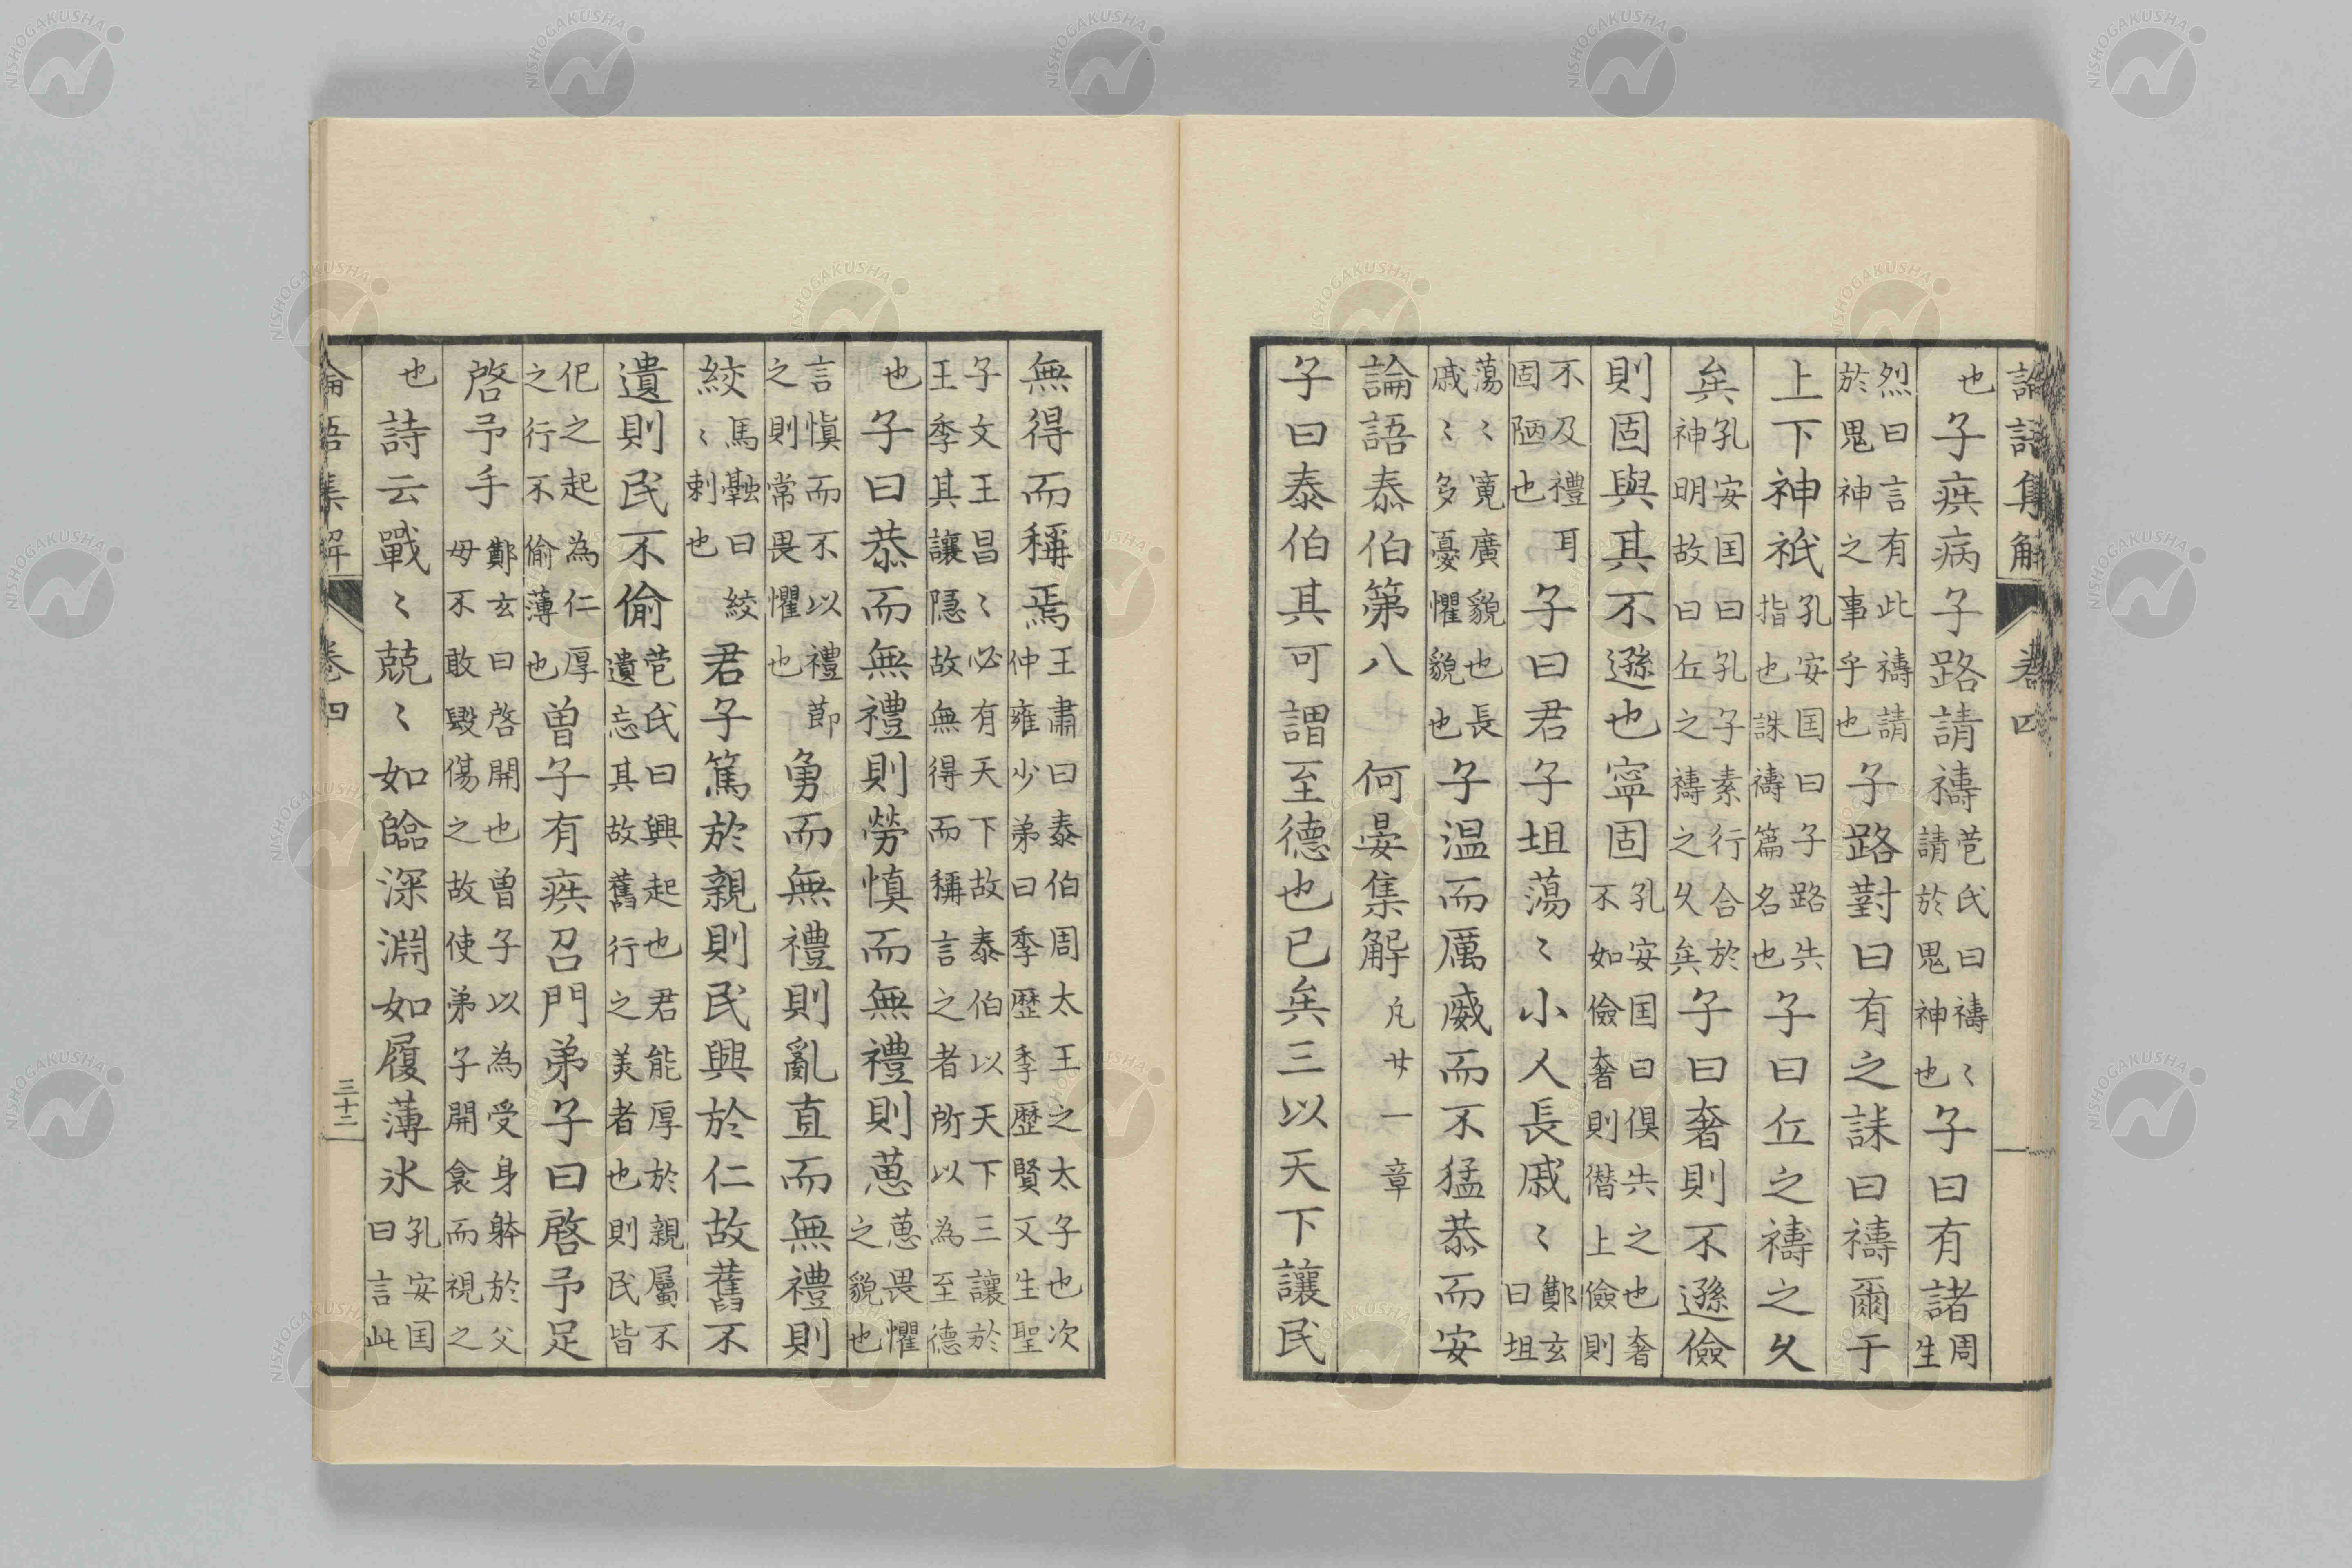 論語集解 卷四
也子疾病子路請禱苞氏曰禱〻請於鬼神也子曰有諸周生
烈曰言有此禱請於鬼神之事乎也子路對曰有之誄曰禱爾于
上下神祇孔安囯曰子路失指也誄禱篇名也子曰丘之禱之久
矣孔安囯曰孔子素行合於神明故曰丘之禱之久矣子曰奢則不遜儉
則固與其不遜也寧固孔安囯曰俱失之也奢不如儉奢則僭上儉則
不及禮耳固陋也子曰君子坦蕩〻小人長戚〻鄭玄曰坦
蕩〻寬廣貌也長戚〻多憂懼貌也子温而厲威而不猛恭而安
論語泰伯第八 何晏集解 凡廿一章
子曰泰伯其可謂至德也已矣三以天下讓民
無得而稱焉王肅曰泰伯周太王之太子也次仲雍少弟曰季歷季歷賢又生聖
子文王昌〻必有天下故泰伯以天下三讓於王季其讓隱故無得而稱言之者所以為至德
也子曰恭而無禮則勞慎而無禮則葸葸畏懼之貌也
言慎而不以禮節之則常畏懼也勇而無禮則亂直而無禮則
絞馬融曰絞〻刺也君子篤於親則民興於仁故舊不
遺則民不偷苞氏曰興起也君能厚於親屬不遺忘其故舊行之美者也則民皆
化之起為仁厚之行不偷薄也曽子有疾召門弟子曰啓予足
啓予手鄭玄曰啓開也曽子以為受身躰於父母不敢毀傷之故使弟子開衾而視之
也詩云戰〻兢〻如臨深淵如履薄氷孔安囯曰言此
論語集解 卷四 三十二
NISHOGAKUSHA